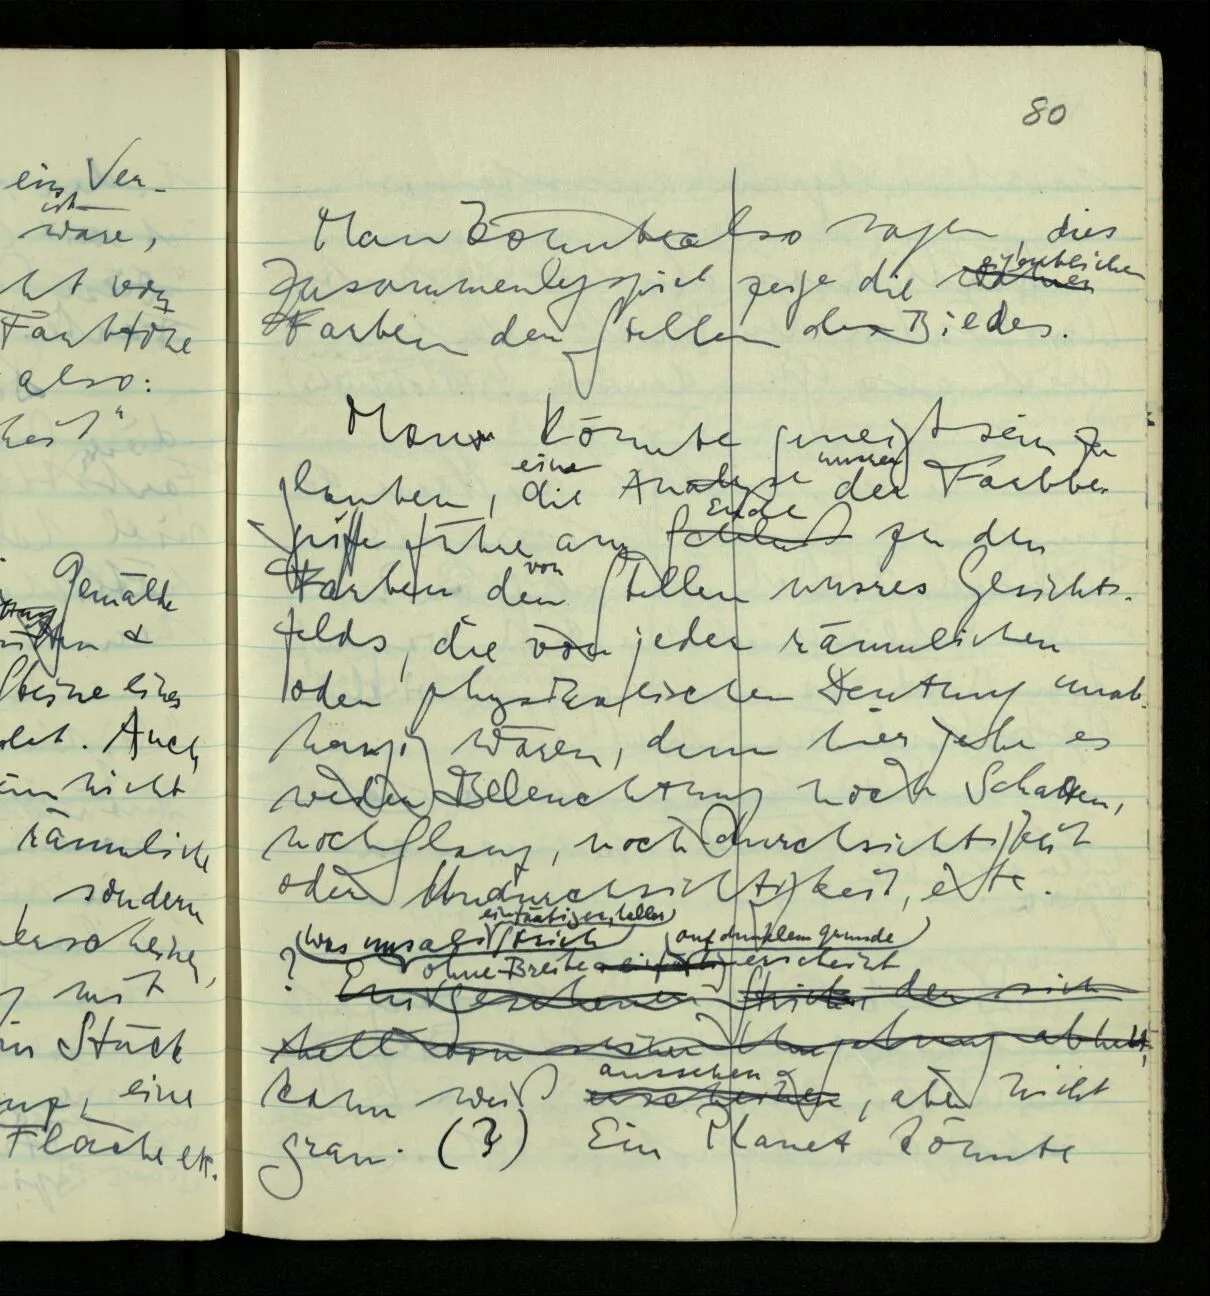 80
ein Ver-
ist
wäre,
Farbtöne
also:
Gemälde
&
Steine eines
Auch
nicht
räumliche
, sondern
mit
Stück
eine
Fläche etc.
Man könnte also sagen dies
Zusammenlegspiel zeige die eigentlichen
Farben der Stellen des Bildes.
Man könnte geneigt sein zu
eine unserer
glauben, die Analyse der Farbbe-
Ende
griffe führe am Schluß zu den
von
Farben der Stellen unsres Gesichts-
felds, die von jeder räumlichen
oder physikalischen Deutung unab-
hängig wären, denn hier gebe es
weder Beleuchtung noch Schatten,
noch Glanz, noch Durchsichtigkeit
oder Undurchsichtigkeit, etc.
ein färbiger, heller
? Was uns als Strich auf dunklem Grunde
ohne Breite erscheint
Ein gesehener Strich der sich
hell von seiner Umgebung abhebt,
aussehen
kann weiß erscheinen, aber nicht
grau. (?) Ein Planet könnte